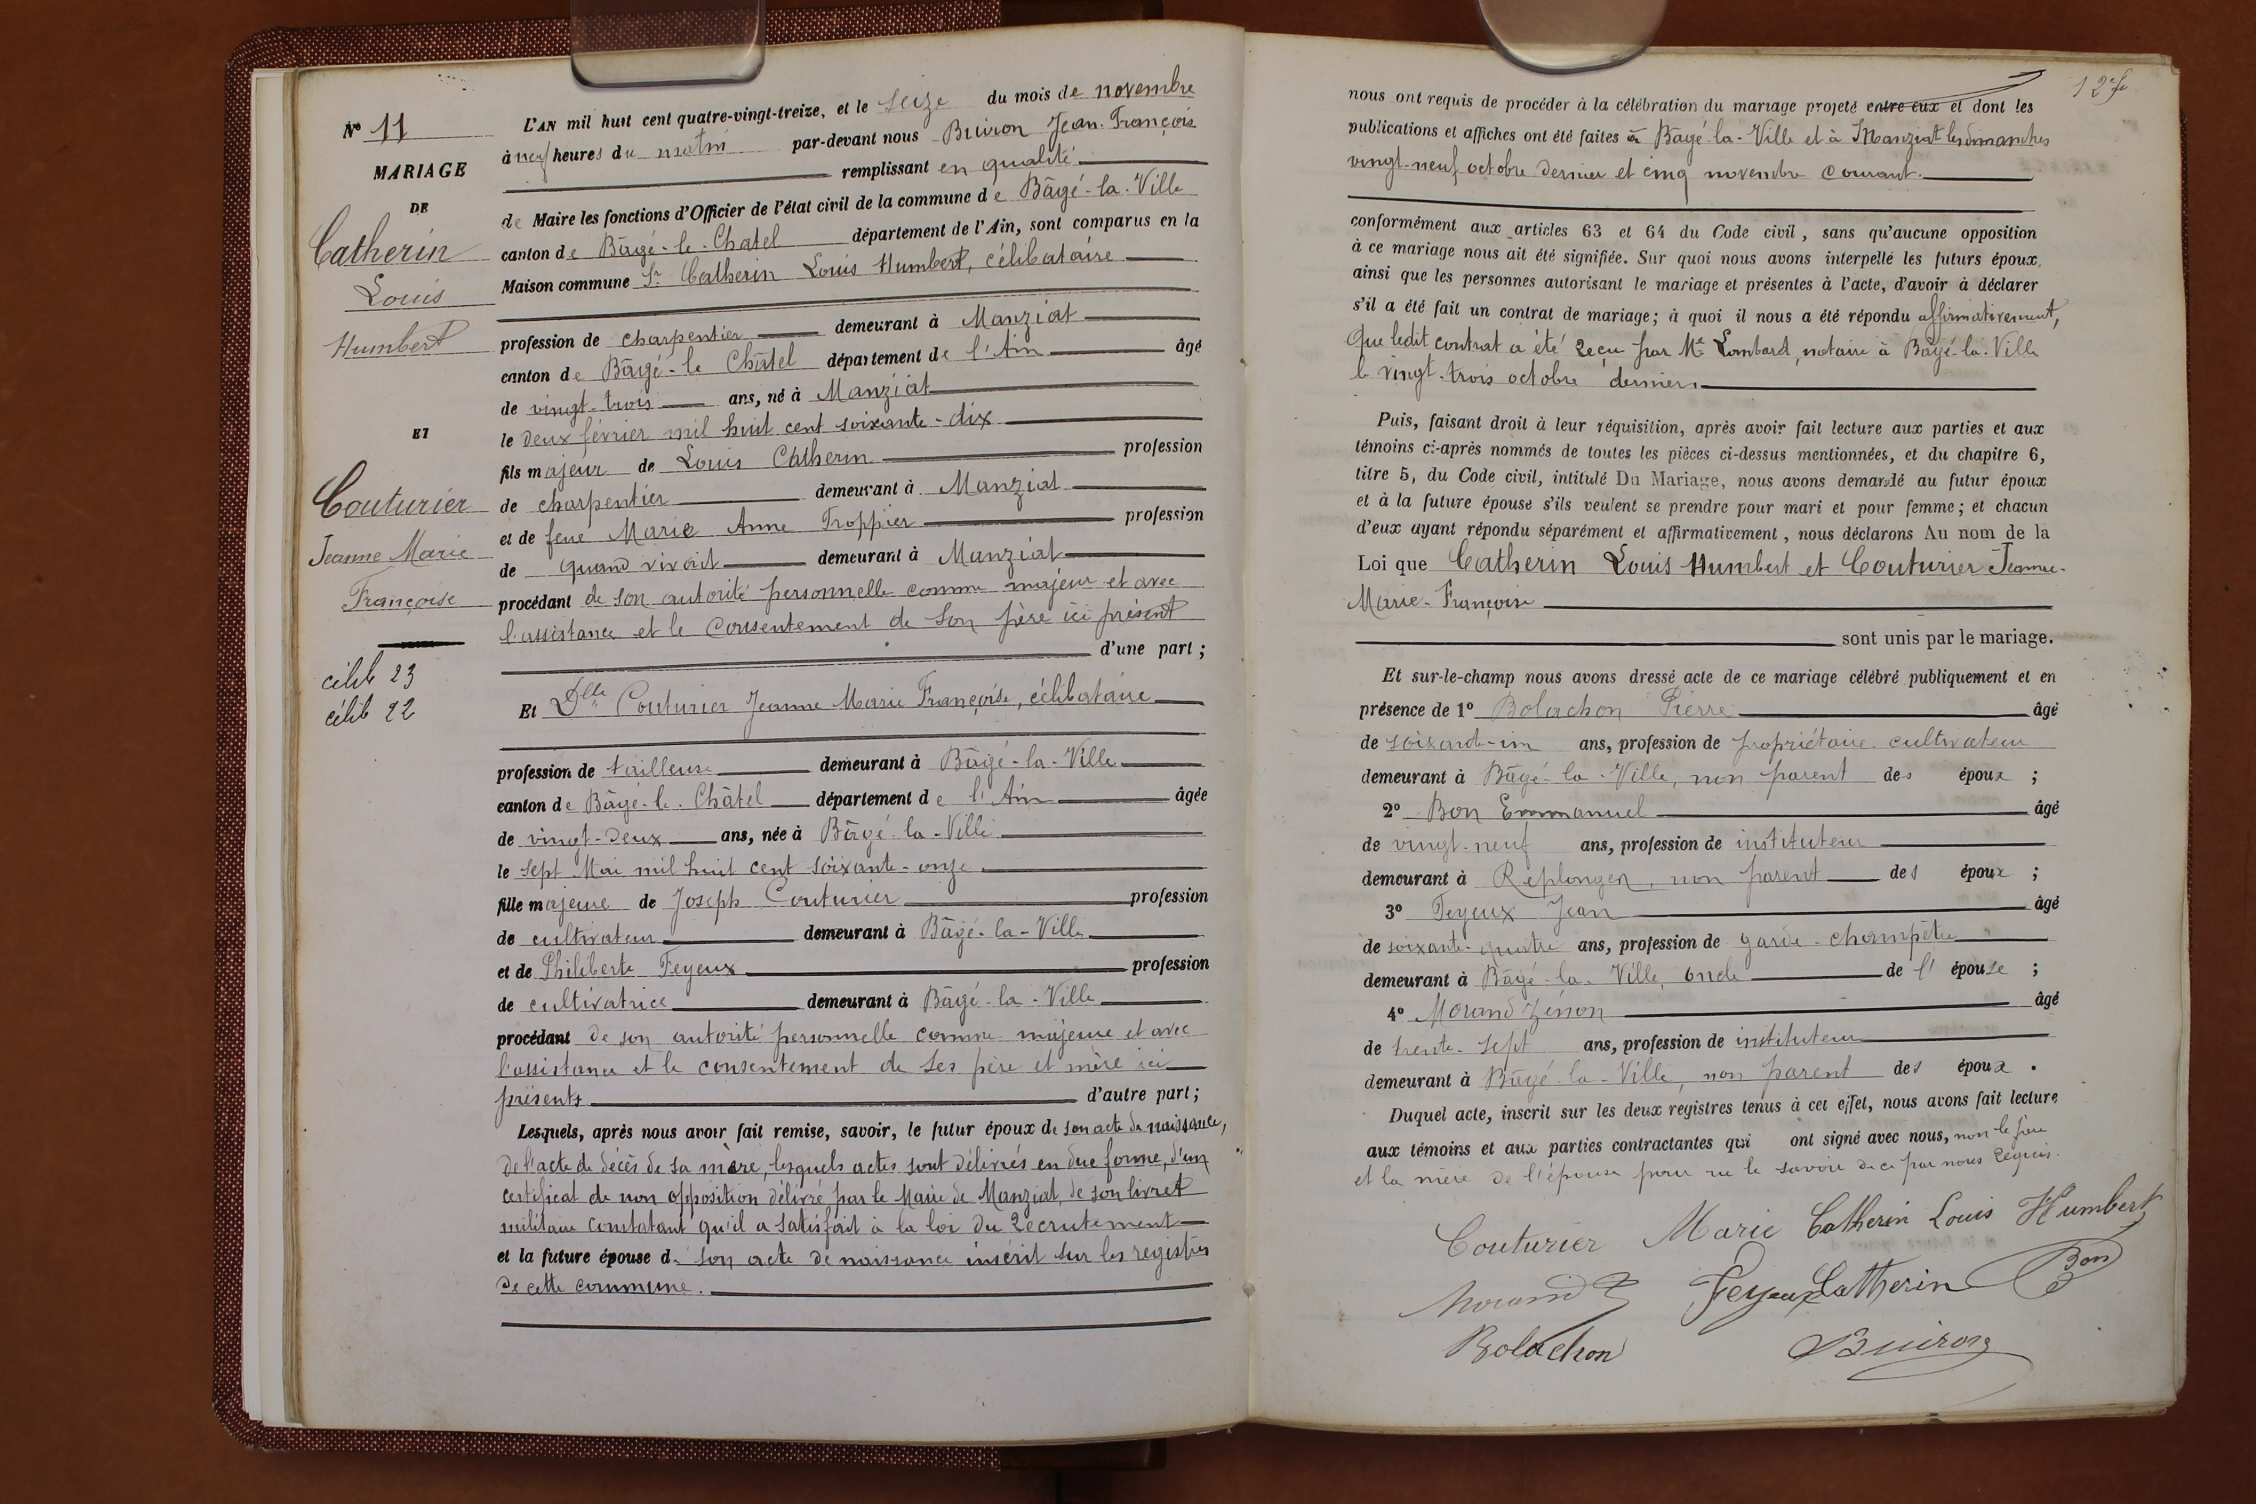 N° 11
MARIAGE
DE
Catherin
Louis
Humbert
ET
Couturier
Jeanne Marie
Françoise
célib 23
célib 22
L'AN mil huit cent quatre-vingt-treize, et le seize du mois de novembre
à neuf heures du matin par-devant nous Buiron Jean-François
remplissant en qualité
de Maire les fonctions d'Officier de l'état civil de la commune de Bâgé-la-Ville
canton de Bâgé-le-Chatel département de l'Ain, sont comparus en la
Maison commune Sr Catherin Louis Humbert, célibataire
profession de charpentier demeurant à Manziat
canton de Bâgé-le Châtel département de l'Ain âgé
de vingt-trois ans, né à Manziat
le deux février mil huit cent soixante-dix
fils majeur de Louis Catherin profession
de charpentier demeurant à Manziat
et de feue Marie Anne Froppier profession
de quand vivait demeurant à Manziat
procédant de son autorité personnelle comme majeur et avec
l'assistance et le consentement de son père ici présent
d'une part ;
Et Dlle Couturier Jeanne Marie Françoise, célibataire
profession de tailleuse demeurant à Bâgé-la-Ville
canton de Bâgé-le-Châtel département de l'Ain âgée
de vingt-deux ans, née à Bâgé-la-Ville
le sept Mai mil huit cent soixante-onze
fille majeure de Joseph Couturier profession
de cultivateur demeurant à Bâgé-la-Ville
et de Philiberte Feyeux profession
de cultivatrice demeurant à Bâgé-la-Ville
procédant de son autorité personnelle comme majeure et avec
l'assistance et le consentement de ses père et mère ici
présents d'autre part ;
Lesquels, après nous avoir fait remise, savoir, le futur époux de son acte de naissance,
de l'acte de décès de sa mère, lesquels actes sont délivrés en due forme, d'un
certificat de non opposition délivré par le Maire de Manziat, de son livret
militaire constatant qu'il a satisfait à la loi du recrutement
et la future épouse de son acte de naissance inscrit sur les registres
de cette commune.
nous ont requis de procéder à la célébration du mariage projeté entre eux et dont les
publications et affiches ont été faites à Bâgé-la-Ville et à Manziat les dimanches
vingt-neuf octobre dernier et cinq novembre courant.
conformément aux articles 63 et 64 du Code civil, sans qu'aucune opposition
à ce mariage nous ait été signifiée. Sur quoi nous avons interpellé les futurs époux,
ainsi que les personnes autorisant le mariage et présentes à l'acte, d'avoir à déclarer
s'il a été fait un contrat de mariage ; à quoi il nous a été répondu affirmativement,
que ledit contrat a été reçu par Me Lombard, notaire à Bâgé-la-Ville
le vingt-trois octobre dernier
Puis, faisant droit à leur réquisition, après avoir fait lecture aux parties et aux
témoins ci-après nommés de toutes les pièces ci-dessus mentionnées, et du chapitre 6,
titre 5, du Code civil, intitulé Du Mariage, nous avons demandé au futur époux
et à la future épouse s'ils veulent se prendre pour mari et pour femme ; et chacun
d'eux ayant répondu séparément et affirmativement, nous déclarons Au nom de la
Loi que Catherin Louis Humbert et Couturier Jeanne-
Marie-Françoise
sont unis par le mariage.
Et sur-le-champ nous avons dressé acte de ce mariage célébré publiquement et en
présence de 1° Bolachon Pierre âgé
de soixante-un ans, profession de propriétaire cultivateur
demeurant à Bâgé-la-Ville, non parent des époux ;
2° Bon Emmanuel âgé
de vingt-neuf ans, profession de instituteur
demeurant à Replonges, non parent des époux ;
3° Feyeux Jean âgé
de soixante-quatre ans, profession de garde-champêtre
demeurant à Bâgé-la-Ville, oncle de l'épouse ;
4° Morand Zénon âgé
de trente-sept ans, profession de instituteur
demeurant à Bâgé-la-Ville, non parent des époux.
Duquel acte, inscrit sur les deux registres tenus à cet effet, nous avons fait lecture
aux témoins et aux parties contractantes qui ont signé avec nous, non le père
et la mère de l'épouse pour ne le savoir de ce par nous requis.
Couturier Marie Catherin Louis Humbert
Morand Z Feyeux Catherin Bon
Bolachon Buiron